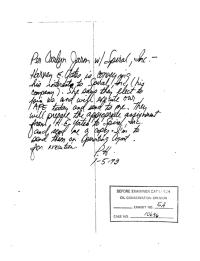 Per Carolyn Jason w/ Spiral, Inc. -
Harvey E. Yates is conveying
his interests to Spiral, Inc. (his
company). She says they elect to
join us and will execute our
AFE today and send to me. They
will prepare the appropriate assignment
from H. E. Yates to Spiral, Inc.
and send me a copy. I'm to
send them an Operating Agmt.
for execution.
1-5-93
BEFORE EXAMINER CATANACH
OIL CONSERVATION DIVISION
EXHIBIT NO. 5A
CASE NO. 10646